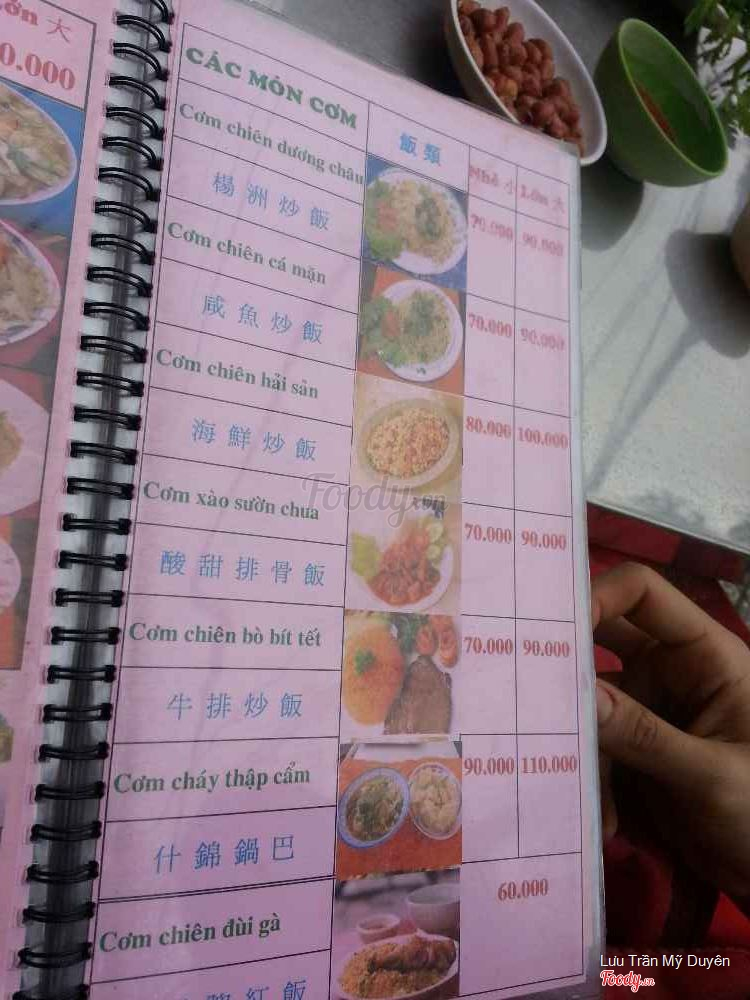 Lớn 大
0.000
CÁC MÓN CƠM
飯類
Nhỏ 小 Lớn 大
Cơm chiên dương châu
楊洲炒飯
70.000 90.000
Cơm chiên cá mặn
咸魚炒飯
70.000 90.000
Cơm chiên hải sản
海鮮炒飯
80.000 100.000
Cơm xào sườn chua
酸甜排骨飯
70.000 90.000
Cơm chiên bò bít tết
牛排炒飯
70.000 90.000
Cơm cháy thập cẩm
什錦鍋巴
90.000 110.000
Cơm chiên đùi gà
紅飯
60.000
Foody.vn
Lưu Trần Mỹ Duyên
Foody.vn